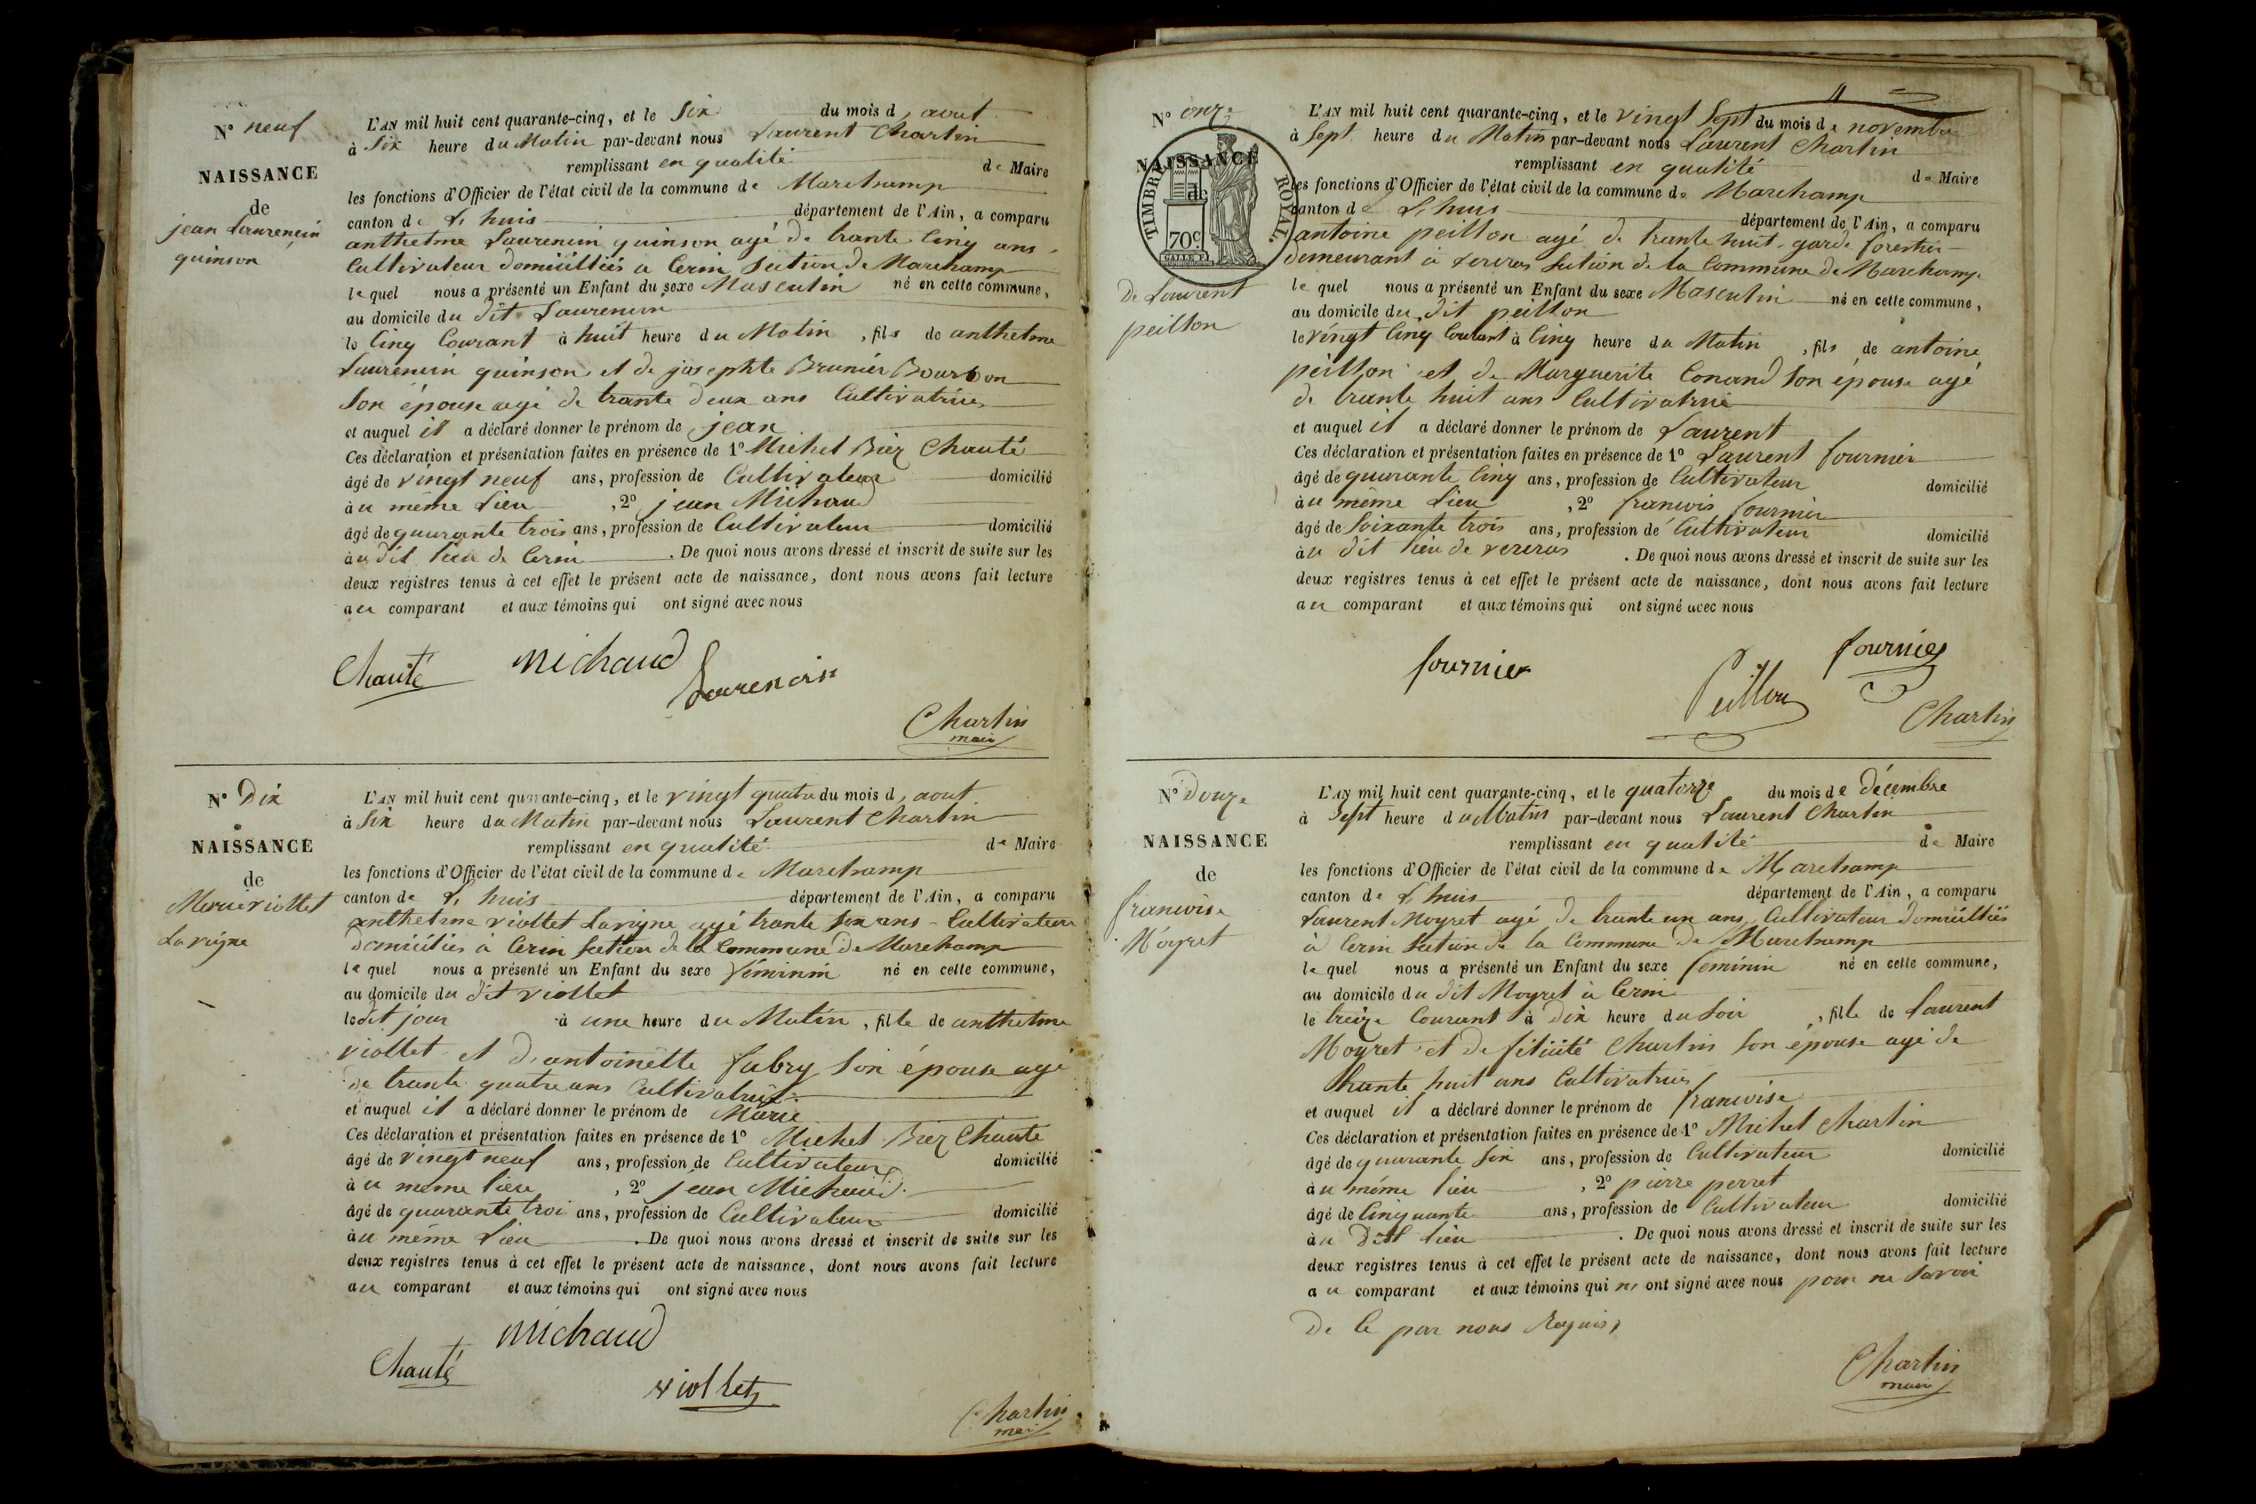 N° neuf
NAISSANCE
de
jean Laurencin
quinson
L'AN mil huit cent quarante-cinq, et le Six du mois d'aout
à Six heure du Matin par-devant nous Laurent Chartin
remplissant en qualité de Maire
les fonctions d'Officier de l'état civil de la commune de Marchamp
canton de L'huis département de l'Ain, a comparu
anthelme Laurencin quinson agé de trante Cinq ans
Cultivateur domicilliés a Cerin Section de Marchamp
lequel nous a présenté un Enfant du sexe Masculin né en cette commune,
au domicile du dit Laurencin
le Cinq Courant à huit heure du Matin, fils de anthelme
Laurencin quinson et de josephte Brunier Bourbon
Son épouse agé de trante deux ans Cultivatrice
et auquel il a déclaré donner le prénom de jean
Ces déclaration et présentation faites en présence de 1° Michel Biez Chanté
âgé de vingt neuf ans, profession de Cultivateur domicilié
à u même Lieu, 2° jean Michaud
âgé de quarante trois ans, profession de Cultivateur domicilié
à u dit lieu de Cerin. De quoi nous avons dressé et inscrit de suite sur les
deux registres tenus à cet effet le présent acte de naissance, dont nous avons fait lecture
au comparant et aux témoins qui ont signé avec nous
Chanté michaud Laurencin
Chartin
maire
N° Dix
NAISSANCE
de
Marie viollet
Lavigne
L'AN mil huit cent quarante-cinq, et le vingt quatre du mois d'aout
à Six heure du Matin par-devant nous Laurent Chartin
remplissant en qualité de Maire
les fonctions d'Officier de l'état civil de la commune de Marchamp
canton de L'huis département de l'Ain, a comparu
anthelme viollet Lavigne agé trante Six ans - Cultivateur
domiciliés à Cerin Section de la Commune de Marchamp
lequel nous a présenté un Enfant du sexe féminin né en cette commune,
au domicile du dit viollet
le dit jour à une heure du Matin, fille de anthelme
viollet et d'antoinette fabry Son épouse agé
de trante quatre ans Cultivatrice
et auquel il a déclaré donner le prénom de Marie
Ces déclaration et présentation faites en présence de 1° Michel Biez Chanté
âgé de vingt neuf ans, profession de Cultivateur domicilié
à u même lieu, 2° jean Michaud
âgé de quarante troi ans, profession de Cultivateur domicilié
à u même Lieu. De quoi nous avons dressé et inscrit de suite sur les
deux registres tenus à cet effet le présent acte de naissance, dont nous avons fait lecture
au comparant et aux témoins qui ont signé avec nous
michaud
Chanté
viollet
Chartin
maire
N° onze
NAISSANCE
de
TIMBRE ROYAL.
70c
De Laurent
peillon
L'AN mil huit cent quarante-cinq, et le vingt Sept du mois de novembre
à Sept heure du Matin par-devant nous Laurent Chartin
remplissant en qualité de Maire
les fonctions d'Officier de l'état civil de la commune de Marchamp
canton de L'huis département de l'Ain, a comparu
antoine peillon agé de trante huit garde forestier
demeurant à Section de la Commune de Marchamp
lequel nous a présenté un Enfant du sexe Masculin né en cette commune,
au domicile du dit peillon
le vingt Cinq Courant à Cinq heure du Matin, fils de antoine
peillon et de Marguerite Conand Son épouse agé
de trante huit ans Cultivatrice
et auquel il a déclaré donner le prénom de Laurent
Ces déclaration et présentation faites en présence de 1° Laurent fournier
âgé de quarante Cinq ans, profession de Cultivateur domicilié
à u meme Lieu, 2° francois fournier
âgé de Soixante trois ans, profession de Cultivateur domicilié
à u dit lieu de vereras. De quoi nous avons dressé et inscrit de suite sur les
deux registres tenus à cet effet le présent acte de naissance, dont nous avons fait lecture
au comparant et aux témoins qui ont signé avec nous
fournier Peillon fournier
Chartin
N° Douze
NAISSANCE
de
francoise
Moyret
L'AN mil huit cent quarante-cinq, et le quatorze du mois de décembre
à Sept heure du Matin par-devant nous Laurent Chartin
remplissant en qualité de Maire
les fonctions d'Officier de l'état civil de la commune de Marchamp
canton de L'huis département de l'Ain, a comparu
Laurent Moyret agé de trante un ans Cultivateur domicilliés
à Cerin Section de la Commune de Marchamp
lequel nous a présenté un Enfant du sexe féminin né en cette commune,
au domicile du dit Moyret à Cerin
le treize Courant à Dix heure du Soir, fille de Laurent
Moyret et de félicité Chartin Son épouse agé de
trante huit ans Cultivatrice
et auquel il a déclaré donner le prénom de francoise
Ces déclaration et présentation faites en présence de 1° Michel Chartin
âgé de quarante Six ans, profession de Cultivateur domicilié
à u même lieu, 2° pierre perret
âgé de Cinquante ans, profession de Cultivateur domicilié
à u Dit lieu. De quoi nous avons dressé et inscrit de suite sur les
deux registres tenus à cet effet le présent acte de naissance, dont nous avons fait lecture
au comparant et aux témoins qui ne ont signé avec nous pour ne Savoir
De Ce par nous Requis,
Chartin
maire